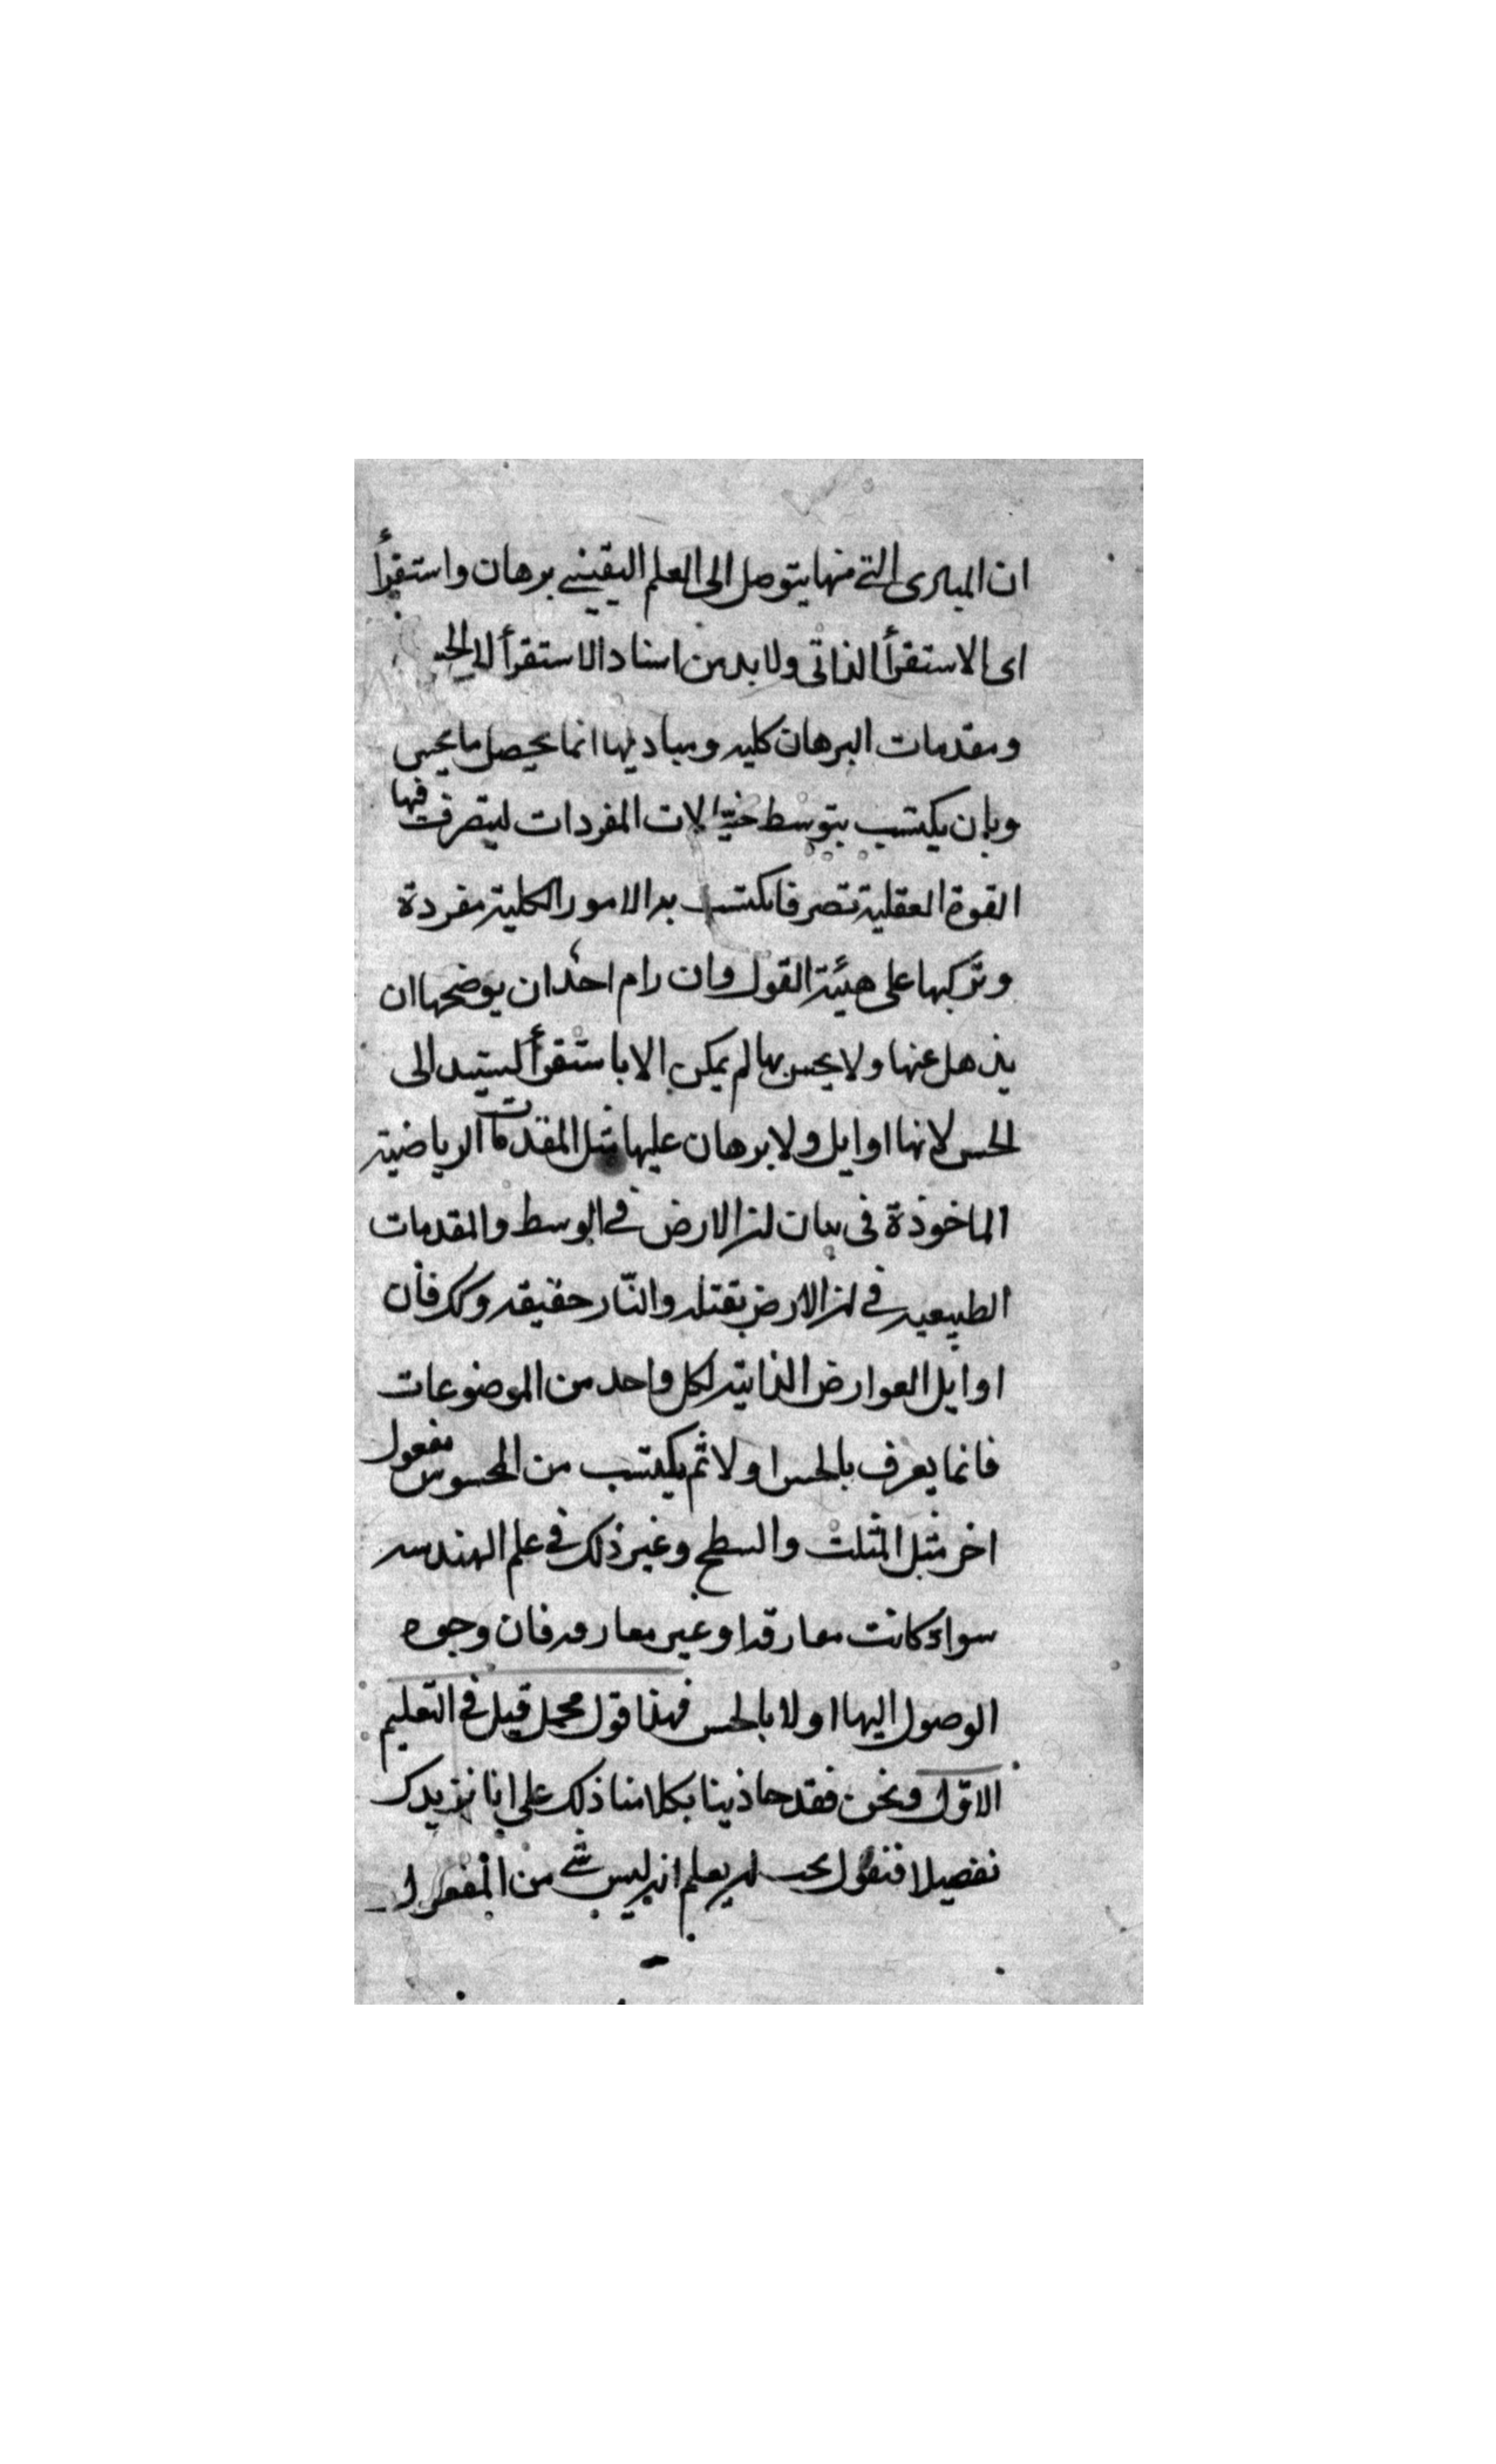 ان المبادى التى منها يتوصل الى العلم اليقينى برهان واستقرأ
اى الاستقرأ الذاتى ولا بد من اسناد الاستقرأ الى الحس
ومقدمات البرهان كليه ومباديها انما يحصل ما يحس
وبان يكتسب بتوسط خيالات المفردات ليتصرف فيها
القوة العقلية تصرفا يكتسب به الامور الكلية مفردة
وتركبها على هيئة القول وان رام احد ان يوضحها ان
يذهل عنها ولا يحس بها لم يمكن الا باستقرأ ليستند الى
الحس لانها اوايل ولا برهان عليها مثل المقدمات الرياضية
الماخوذة فى بيان ان الارض فى الوسط والمقدمات
الطبيعيه فى ان الارض ثقيله والنّار خفيفه وكك فان
اوايل العوارض الذاتية لكل واحد من الموضوعات
فانما يعرف بالحس اولا ثم يكتسب من المحسوس معقول
اخر مثل المثلث والسطح وغير ذلك فى علم الهندسه
سواء كانت مفارقه او غير مفارقه فان وجوه
الوصول اليها اولا بالحس فهذا قول مجمل قيل فى التعليم
الاوّل ونحن فقد حاذينا بكلامنا ذلك على انا نزيدك
تفصيلا فنقول يجب ان يعلم انه ليس شى من المعقول